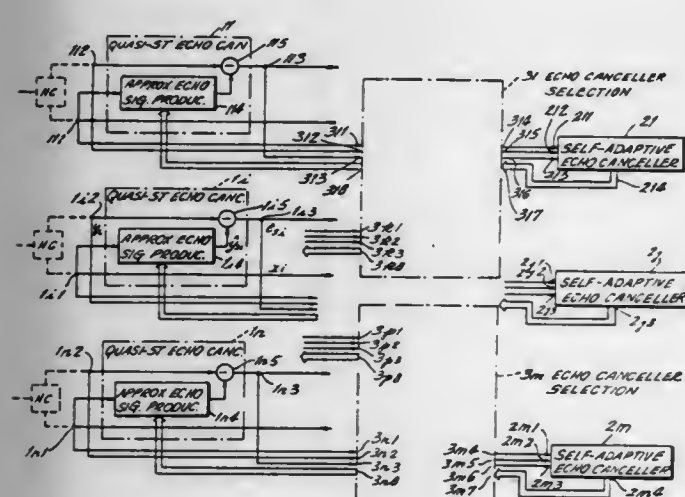 11
QUASI-ST ECHO CAN
115
112
113
HC
APPROX ECHO
SIG. PRODUC.
114
111
31 ECHO CANCELLER
SELECTION
311
312
313
318
314
315
212
211
21
SELF-ADAPTIVE
ECHO CANCELLER
213
214
316
317
1i
QUASI-ST ECHO CANC
1i2
1i5
1i3
HC
APPROX ECHO
SIG. PRODUC.
1i4
xi
1i1
3k1
3k2
3k3
3k8
2j1
2j2
2j
SELF-ADAPTIVE
ECHO CANCELLER
2j3
1n
QUASI-ST ECHO CANC
1n2
1n5
1n3
HC
APPROX ECHO
SIG. PRODUC.
1n4
1n1
3p1
3p2
3p3
3p8
3m ECHO CANCELLER
SELECTION
3n1
3n2
3n3
3n8
3m4
3m5
3m6
3m7
2m1
2m2
2m
SELF-ADAPTIVE
ECHO CANCELLER
2m3
2m4